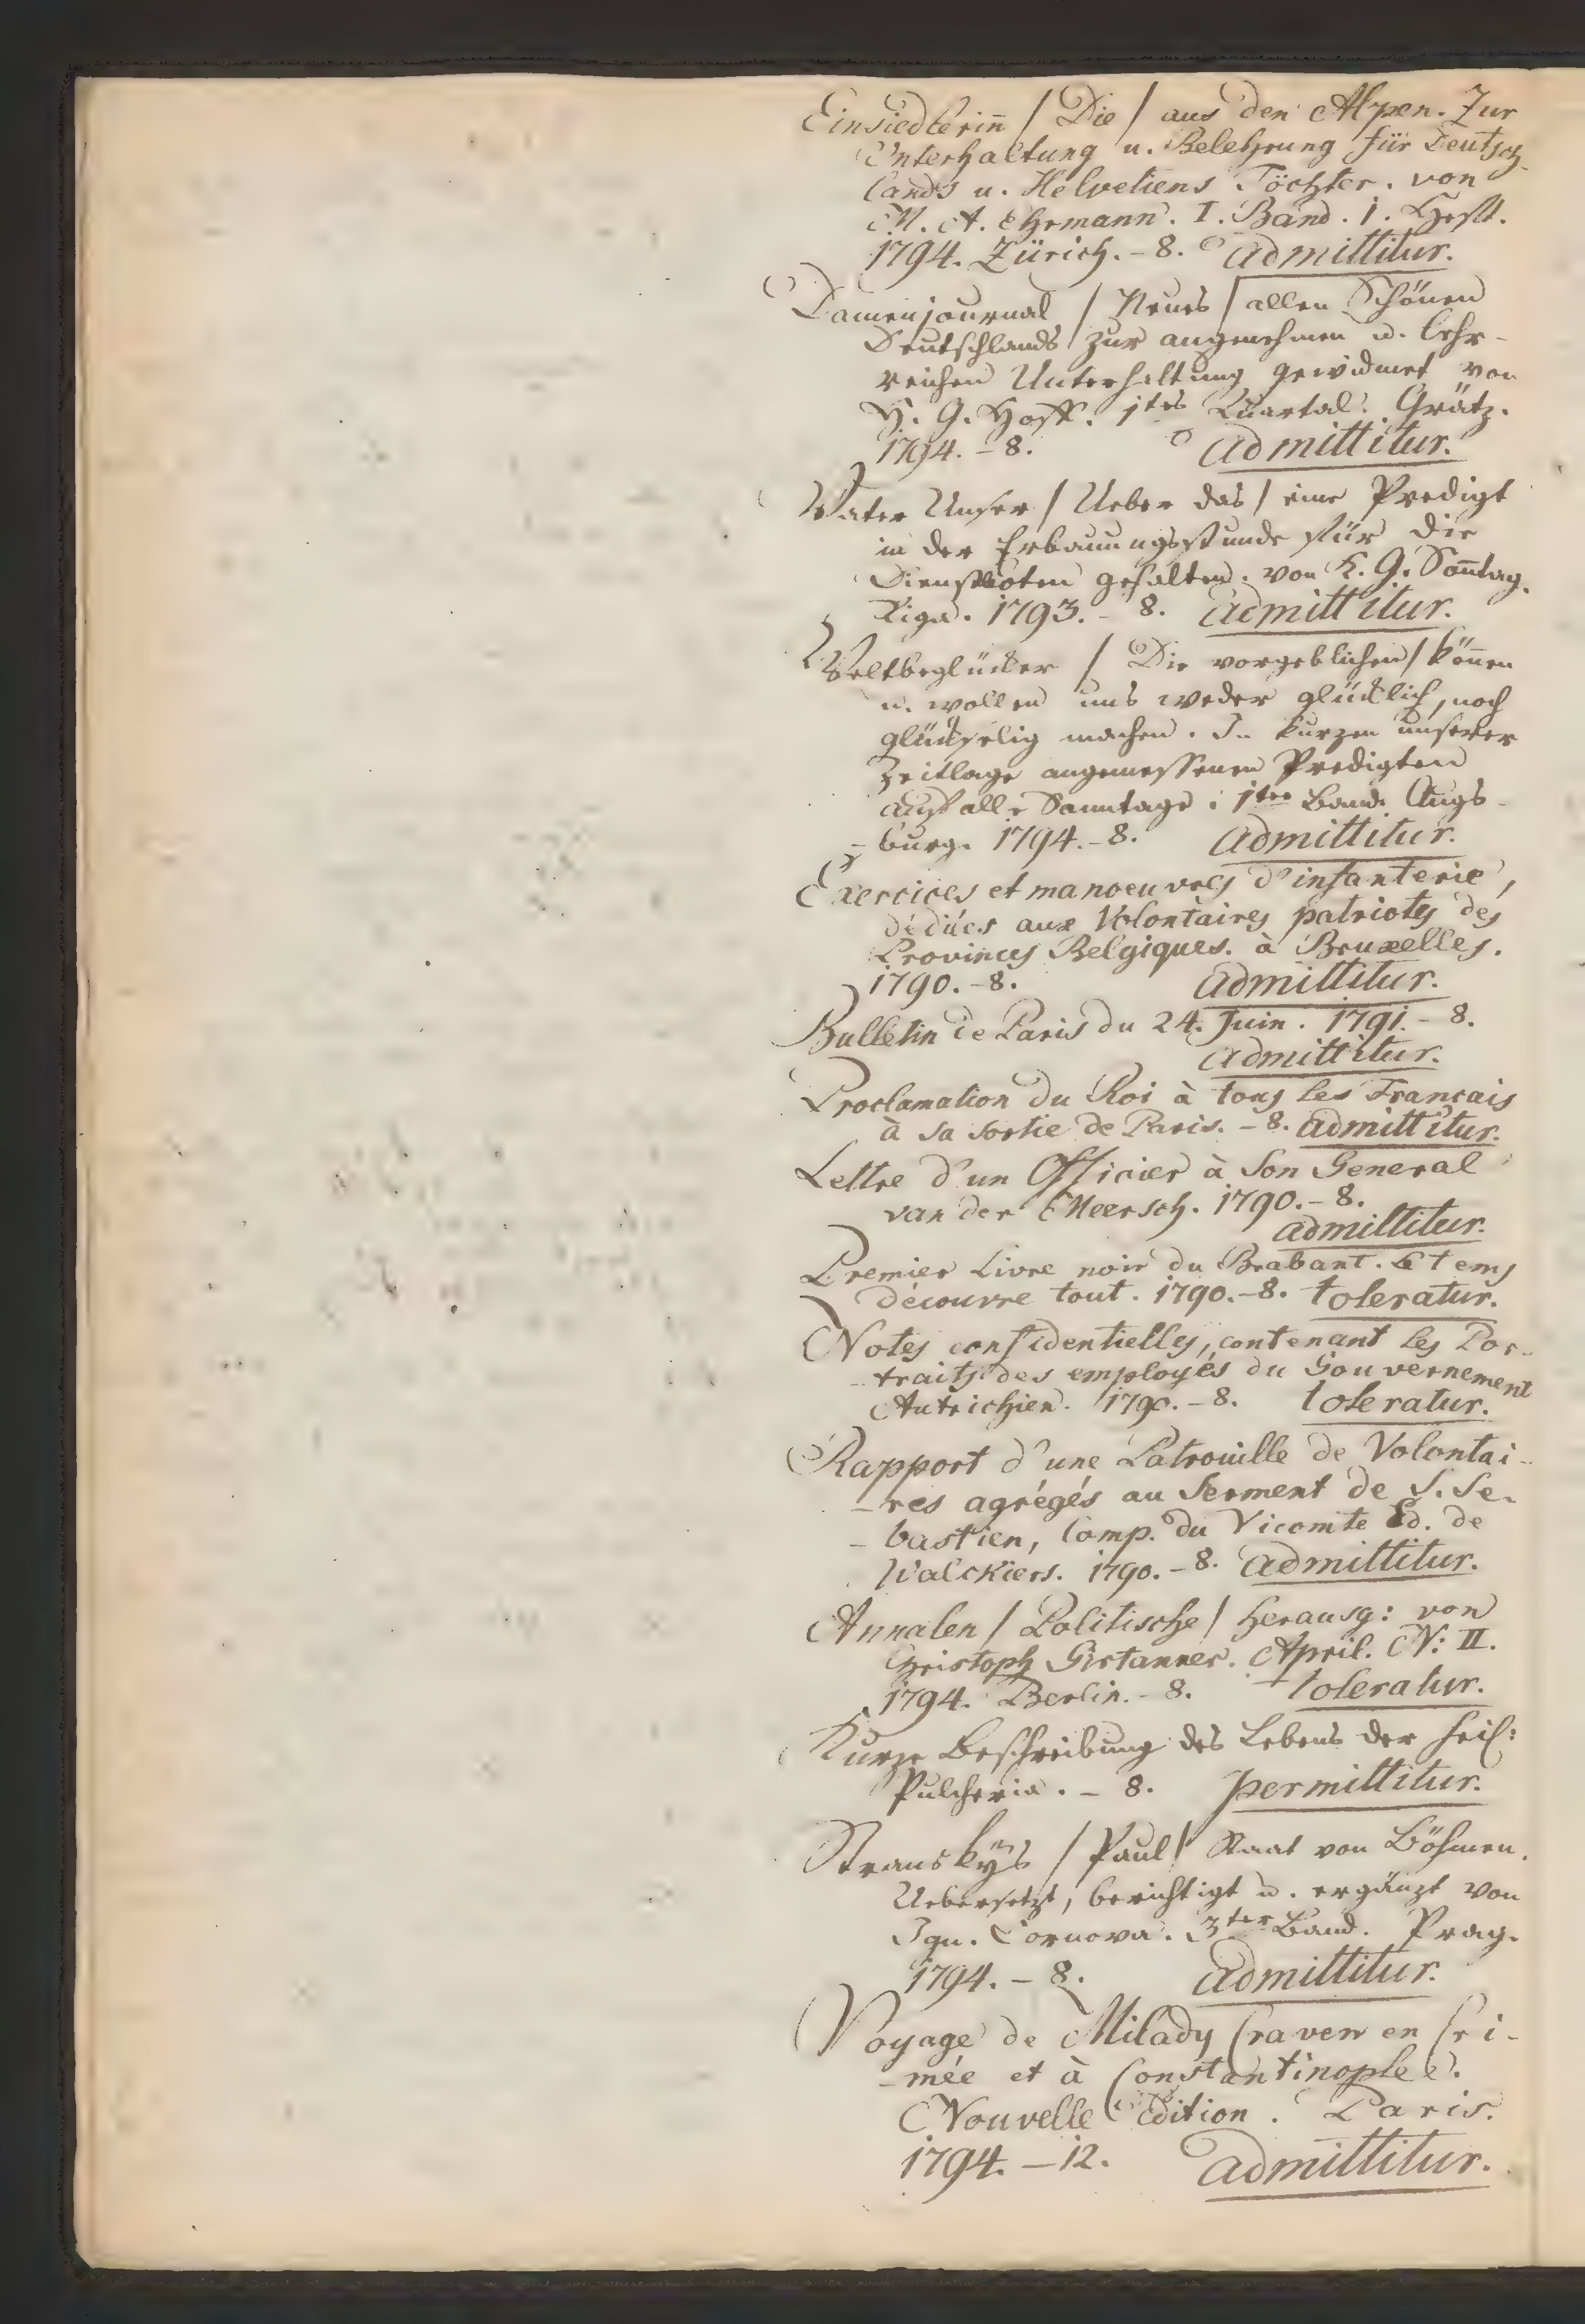 Einsiedlerin̄ / Die / aus den Alpen. Zur
Unterhaltung u. Belehrung für Deutsch-
lands u. Helvetiens Töchter. von
M. A. Ehrmann. I. Band. 1. Heft.
1794. Zürich. - 8. admittitur.
Damenjournal / Neues / allen Schönen
Deutschlands zur angenehmen u. lehr-
reichen Unterhaltung gewidmet von
H. G. Hoff. 1tes Quartal. Grätz.
1794. - 8. admittitur.
Vater Unser / Ueber das / eine Predigt
in der Erbauungsstunde für die
Dienstboten gehalten. von K. G. Son̄tag.
Riga. 1793. - 8. admittitur.
Weltbeglücker / Die vorgeblichen / kön̄en
u. wollen uns weder glücklich, noch
glückselig machen. In kurzen unserer
Zeitlage angemessenen Predigten
auf alle Sonntage. 1ter Band. Augs-
-burg. 1794. - 8. admittitur.
Exercices et manoeuvres d'infanterie,
dédiées aux Volontaires patriotes des
Provinces Belgiques. à Bruxelles.
1790. - 8. admittitur.
Bulletin de Paris du 24. Juin. 1791. - 8.
admittitur.
Proclamation du Roi à tous les Francais
à sa sortie de Paris. - 8. admittitur.
Lettre d'un Officier à Son General
van der Meersch. 1790. - 8.
admittitur.
Premier Livre noir du Brabant. Le tems
découvre tout. 1790. - 8. toleratur.
Notes confidentielles, contenant les Por-
-traits des employés du Gouvernement
Autrichien. 1790. - 8. toleratur.
Rapport d'une Patrouille de Volontai-
-res agrégés au Serment de S. Se-
-bastien, Comp. du Vicomte Ed. de
Walckiers. 1790. - 8. admittitur.
Annalen / Politische / herausg: von
Christoph Girtanner. April. N: II.
1794. Berlin. - 8. toleratur.
Kurze Beschreibung des Lebens der heil:
Pulcheria. - 8. permittitur.
Stranskÿs / Paul / Staat von Böhmen.
Uebersetzt, berichtigt u. ergänzt von
Ign. Cornova. 3ter Band. Prag.
1794. - 8. admittitur.
Voyage de Milady Craven en Cri-
-mée et à Constantinople.
Nouvelle Edition. Paris.
1794. - 12. admittitur.